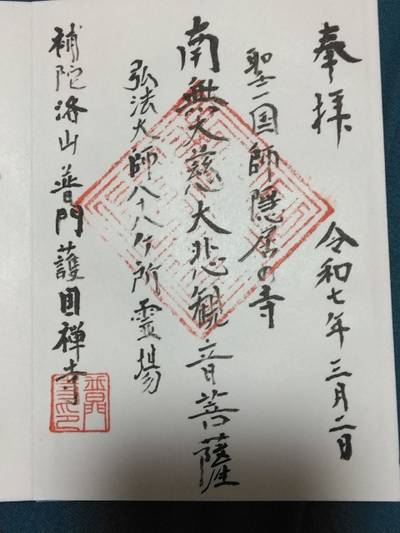 奉拝
令和七年三月二日
聖一国師隠居の寺
南無大慈大悲観音菩薩
弘法大師八十八ケ所霊場
補陀洛山普門護国禅寺